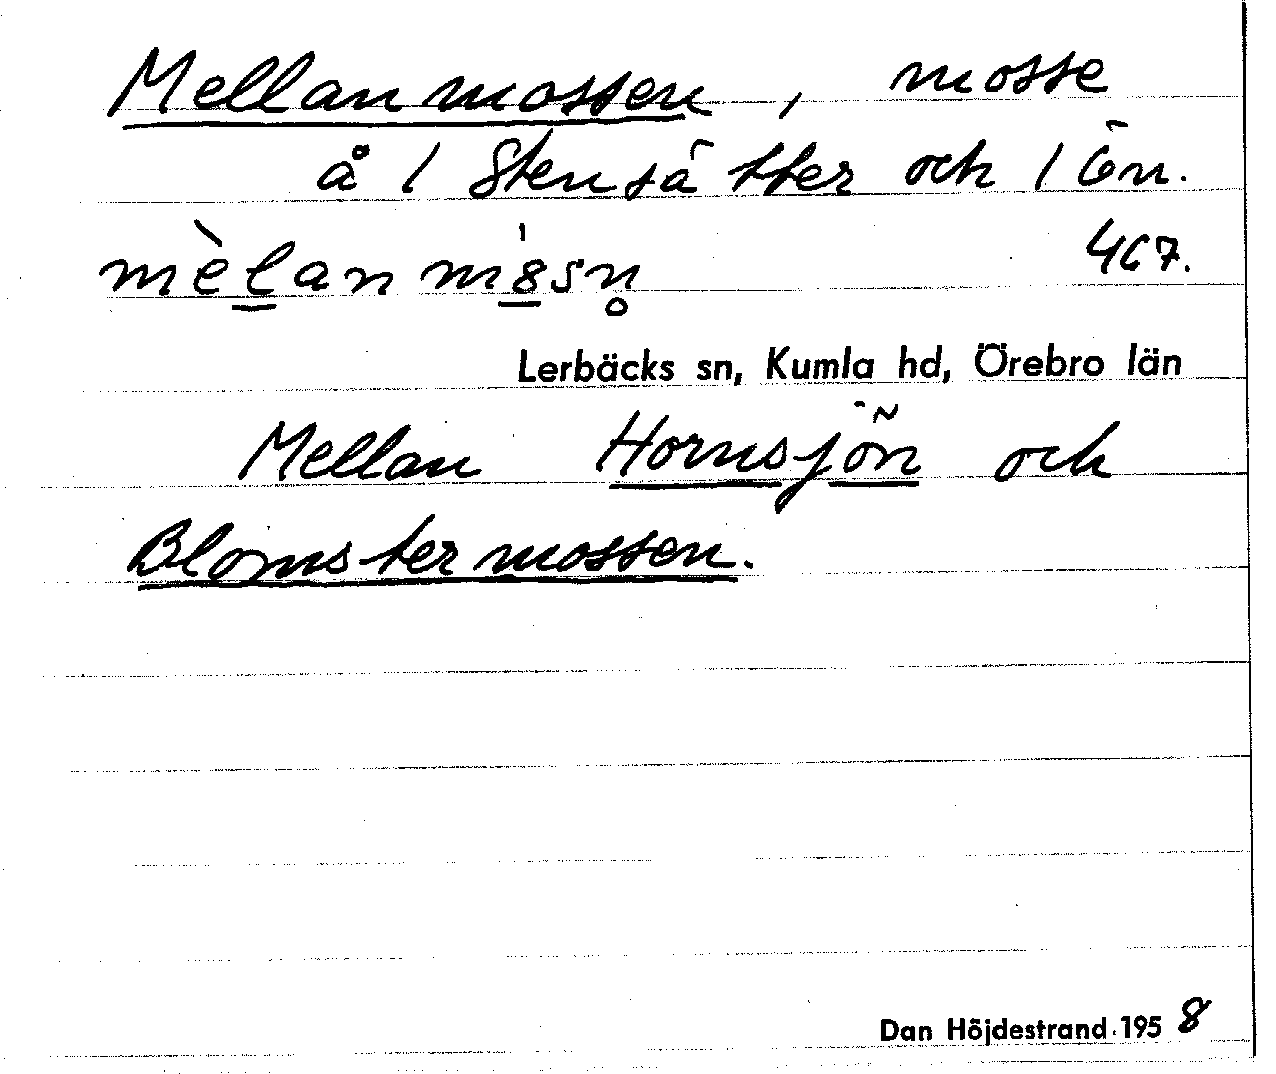 Mellanmossen, mosse
å 1 Stensätter och 1 Lön.
mèlanmósn̥ 467.
Lerbäcks sn, Kumla hd, Örebro län
Mellan Hornsjön och
Blomstermossen.
Dan Höjdestrand 1958